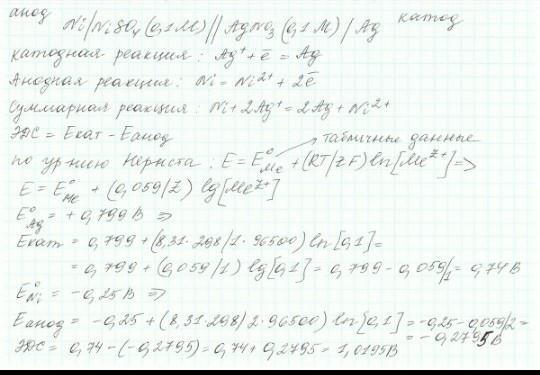 анод катод
Ni/NiSO₄(0,1M)//AgNO₃(0,1M)/Ag
катодная реакция: Ag⁺+ē=Ag
Анодная реакция: Ni=Ni²⁺+2ē
Суммарная реакция: Ni+2Ag⁺=2Ag+Ni²⁺
ЭДС = Eкат-Eанод
табличные данные
по ур-нию Нернста: E=E°Me+(RT/zF)ln[Meᶻ⁺]=>
E=E°Me+(0,059/z)lg[Meᶻ⁺]
E°Ag=+0,799В =>
Eкат=0,799+(8,31·298/1·96500)ln[0,1]=
=0,799+(0,059/1)lg[0,1]=0,799-0,059/1=0,74В
E°Ni=-0,25В =>
Eанод=-0,25+(8,31·298/2·96500)ln[0,1]=-0,25-0,059/2=
=-0,2795В
ЭДС=0,74-(-0,2795)=0,74+0,2795=1,0195В